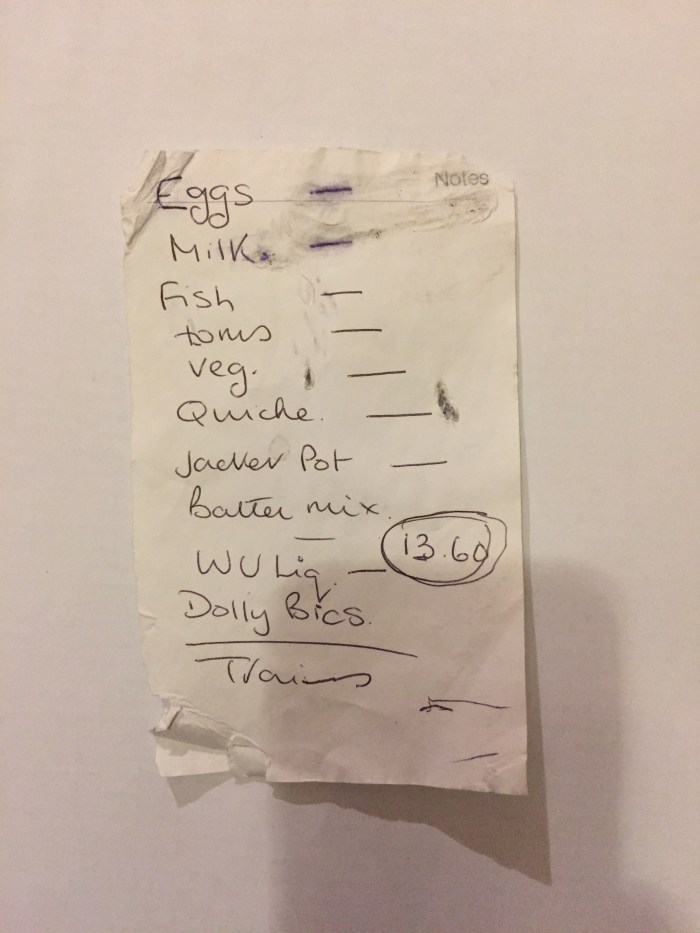 Notes
Eggs —
Milk. —
Fish —
toms —
Veg. —
Quiche. —
Jacket Pot —
Batter mix. —
13.60
WU Liq. —
Dolly Bics.
Trains